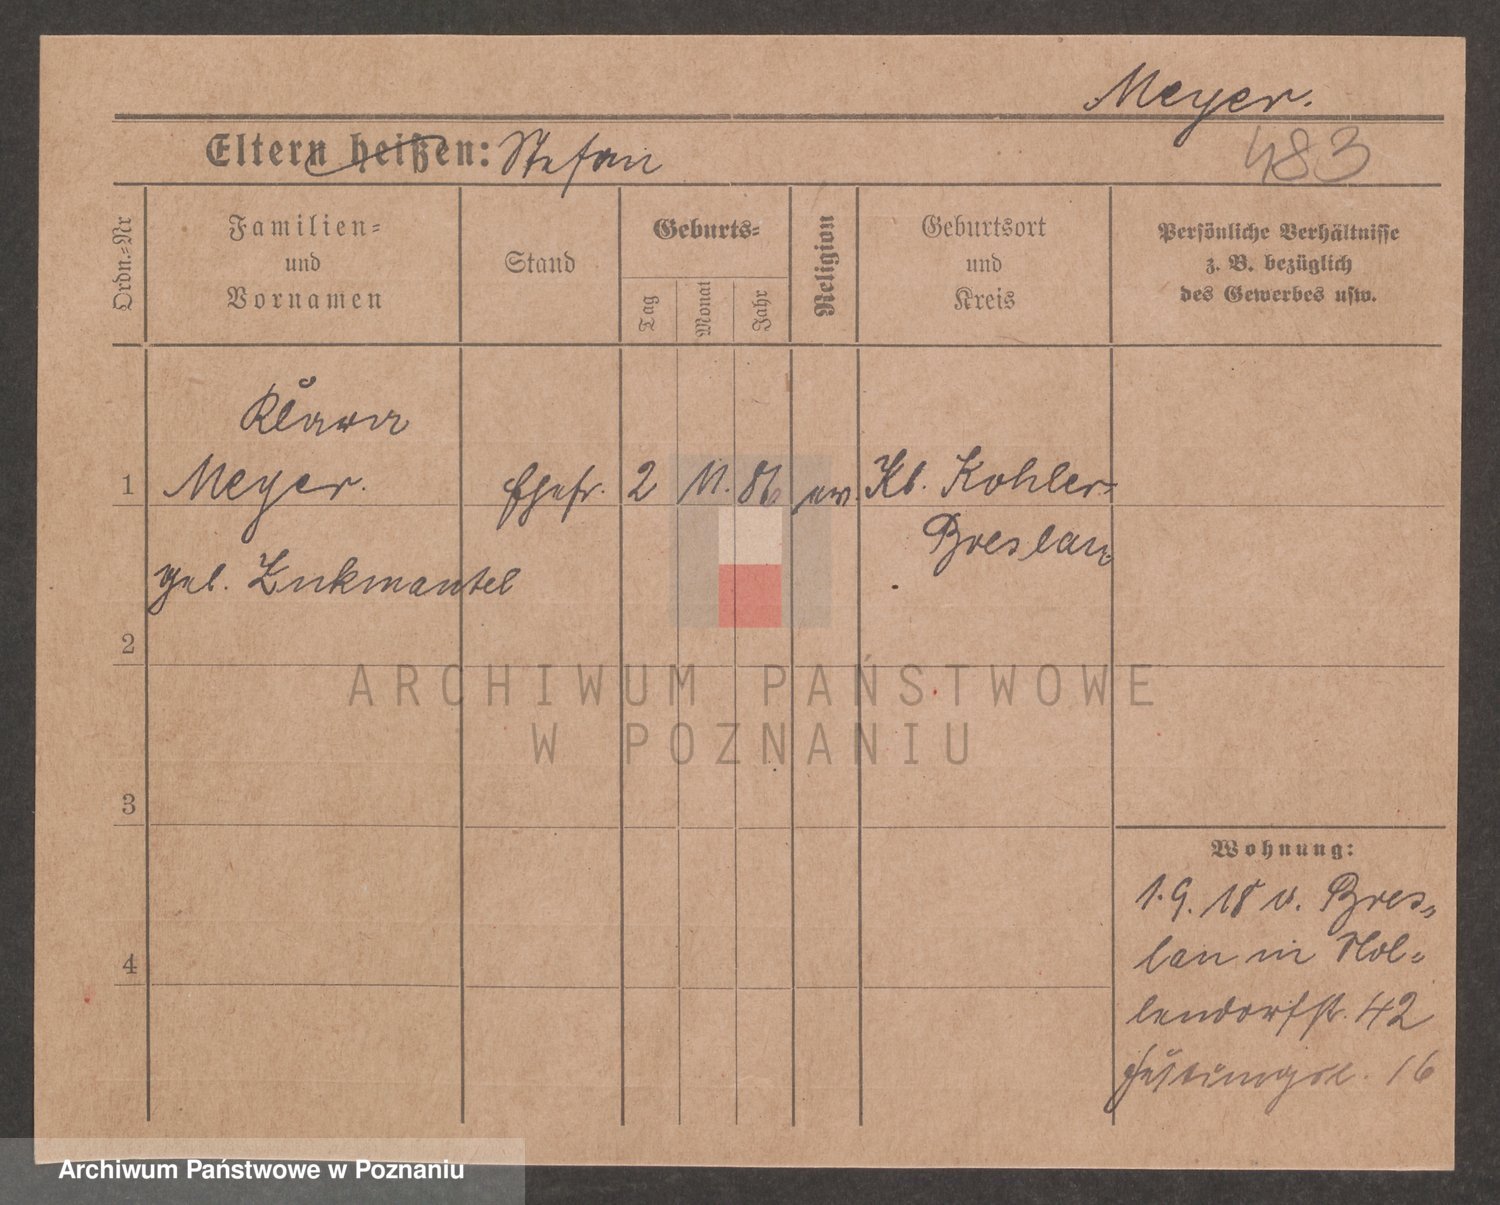 Meyer.
Eltern heißen: Stefan
483
Ordn.=Nr
Familien=
und
Vornamen
Stand
Geburts=
Tag
Monat
Jahr
Religion
Geburtsort
und
Kreis
Persönliche Verhältnisse
z. B. bezüglich
des Gewerbes usw.
Klara
1 Meyer. Ehefr. 2 11. 86 ev. Kohler
Breslau
geb. Zukmantel
2
ARCHIWUM PAŃSTWOWE
W POZNANIU
3
Wohnung:
1.9.18 v. Bres=
lau in Nol=
4
lendorfstr. 42
16
Archiwum Państwowe w Poznaniu